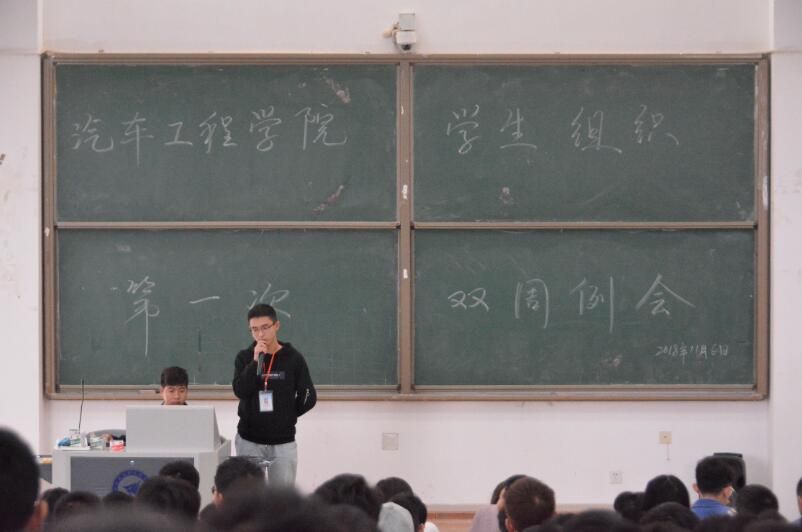 汽车工程学院
学生组织
第一次
双周例会
2018年11月6日